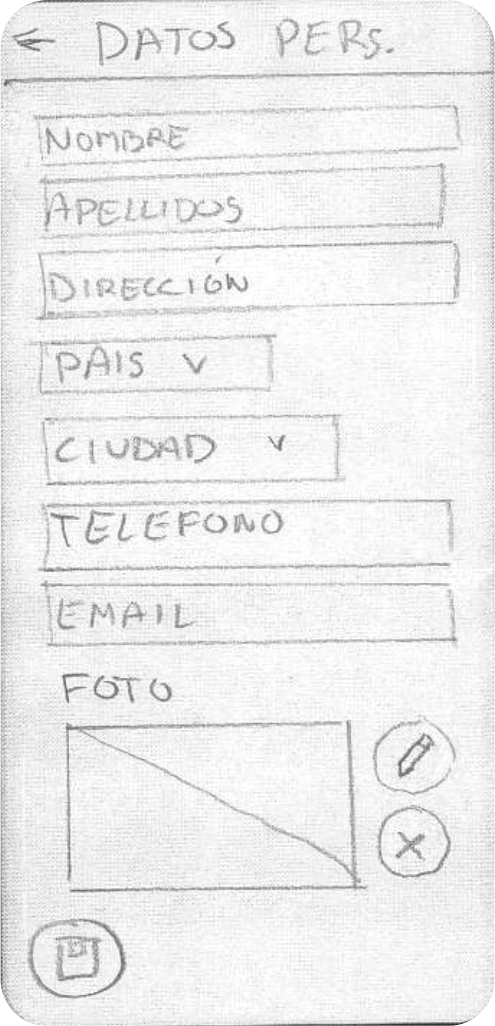 ← DATOS PERS.
NOMBRE
APELLIDOS
DIRECCIÓN
PAIS v
CIUDAD v
TELEFONO
EMAIL
FOTO